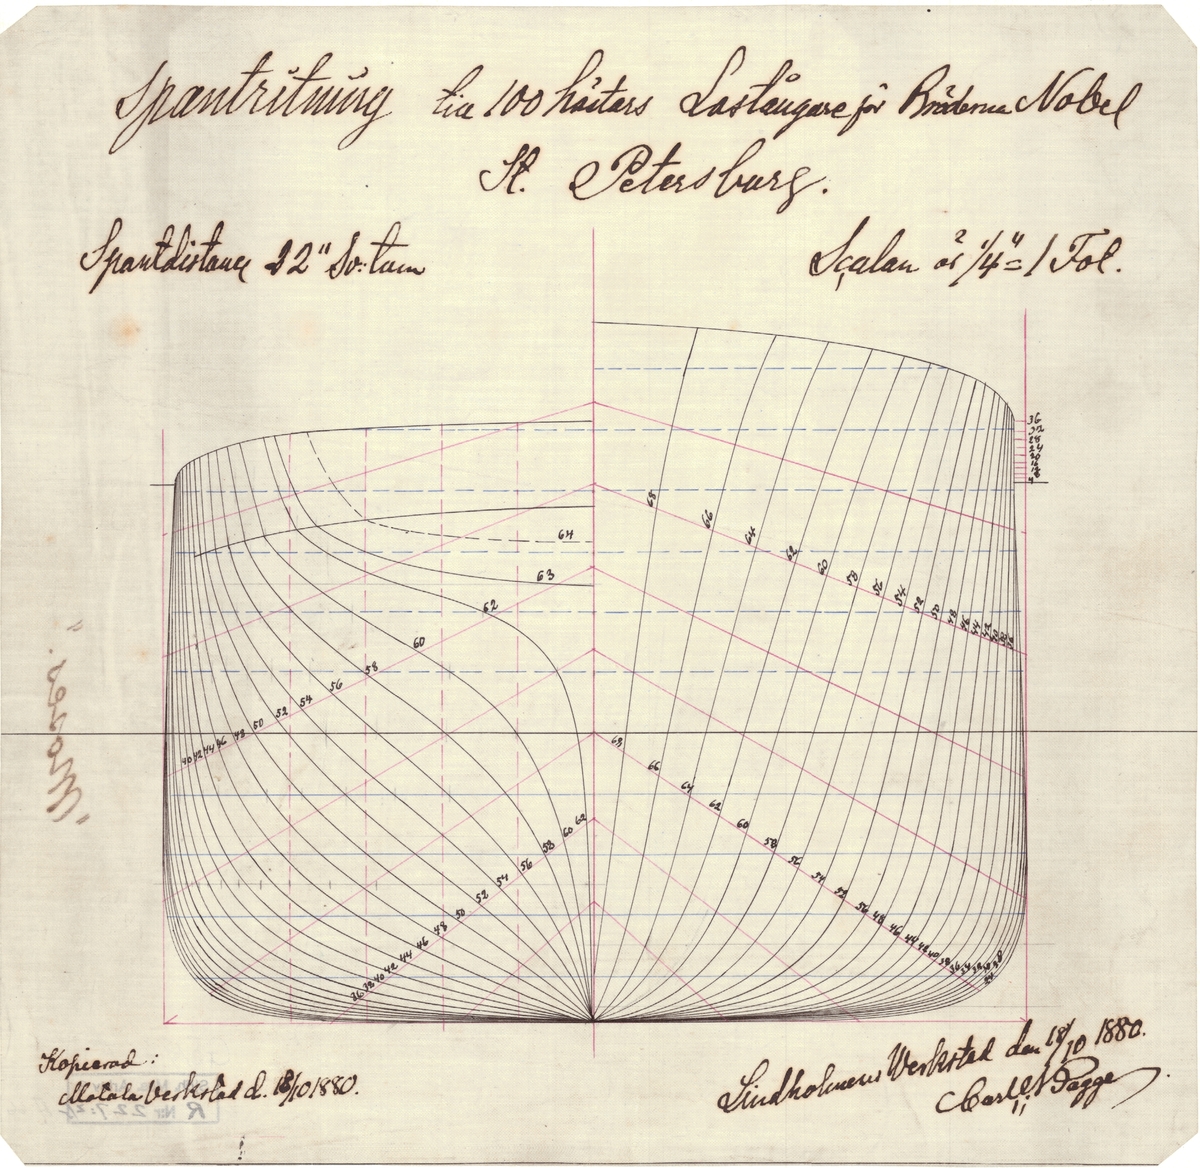 Spantritning till 100 hästars Lastångare för Bröderna Nobel
St. Petersburg.
Spantdistance 22" So: tum
Scalan är 1/4" = 1 Fot.
36
32
28
24
20
16
12
8
4
68 66 64 62 60 58 56 54 52 50 48 46 44 42
64
63
62
60
58
56
54
52
50
48
46
44
42
40
68 66 64 62 60 58 56 54 52 50 48 46 44 42 40 38 36 34
62
60
58
56
54
52
50
48
46
44
42
40
38
36
Kopierad:
Motala Verkstad d. 18/10 1880.
Lindholmens Verkstad den 18/10 1880.
Carl